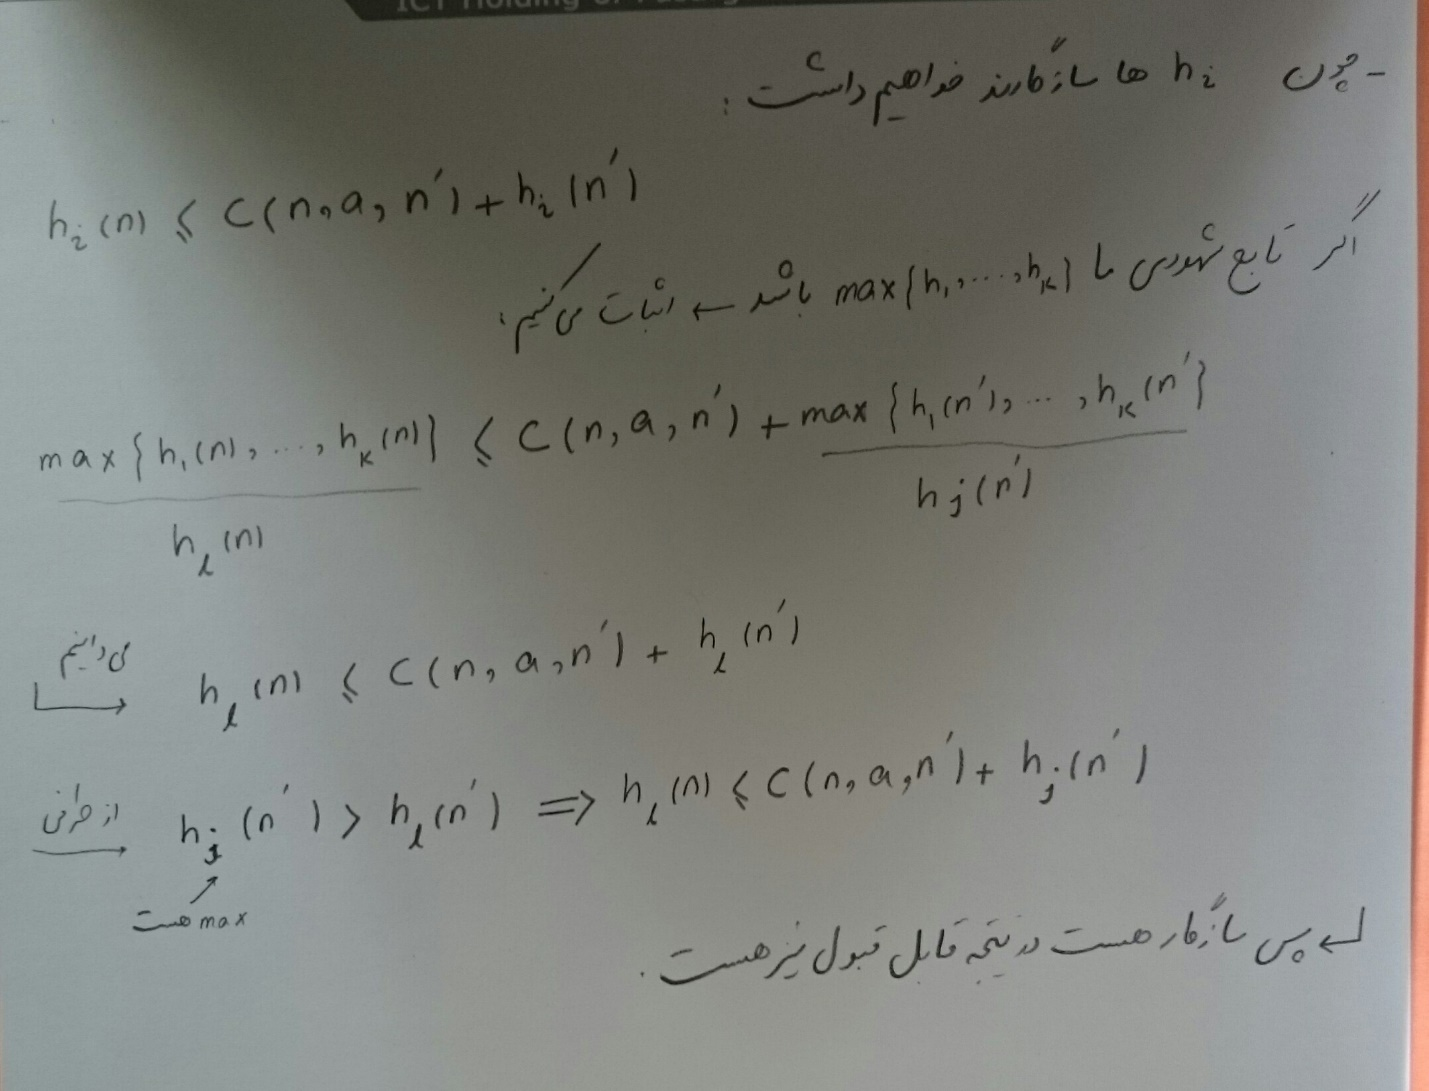 ICT Holding of
- چون h_i ها سازگارند خواهیم داشت :
h_i(n) ⩽ C(n,a,n') + h_i(n')
اگر تابع شهودی ما max{h_1,...,h_k} باشد ← اثبات می کنیم :
max{h_1(n),...,h_k(n)} ⩽ C(n,a,n') + max{h_1(n'),...,h_k(n'}
h_l(n) h_j(n')
می دانیم h_l(n) ⩽ C(n,a,n') + h_l(n')
از طرفی h_j(n') > h_l(n') => h_l(n) ⩽ C(n,a,n') + h_j(n')
max هست
پس سازگار هست در نتیجه قابل قبول نیز هست .